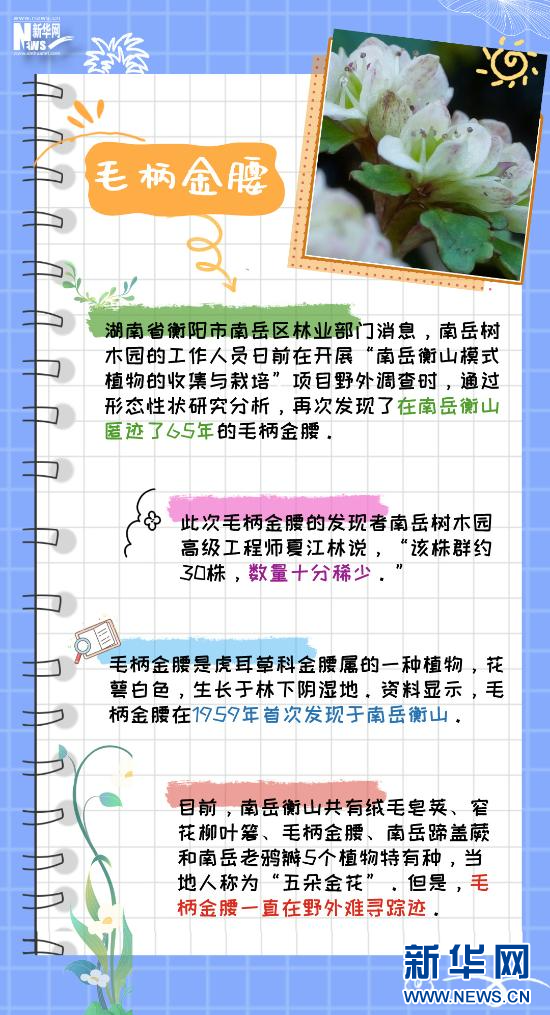 www.news.cn
新华网
NEWS
www.xinhuanet.com
毛柄金腰
湖南省衡阳市南岳区林业部门消息，南岳树
木园的工作人员日前在开展“南岳衡山模式
植物的收集与栽培”项目野外调查时，通过
形态性状研究分析，再次发现了在南岳衡山
匿迹了65年的毛柄金腰．
此次毛柄金腰的发现者南岳树木园
高级工程师夏江林说，“该株群约
30株，数量十分稀少．”
毛柄金腰是虎耳草科金腰属的一种植物，花
萼白色，生长于林下阴湿地．资料显示，毛
柄金腰在1959年首次发现于南岳衡山．
目前，南岳衡山共有绒毛皂荚、窄
花柳叶箬、毛柄金腰、南岳蹄盖蕨
和南岳老鸦瓣5个植物特有种，当
地人称为“五朵金花”．但是，毛
柄金腰一直在野外难寻踪迹．
新华网
WWW.NEWS.CN